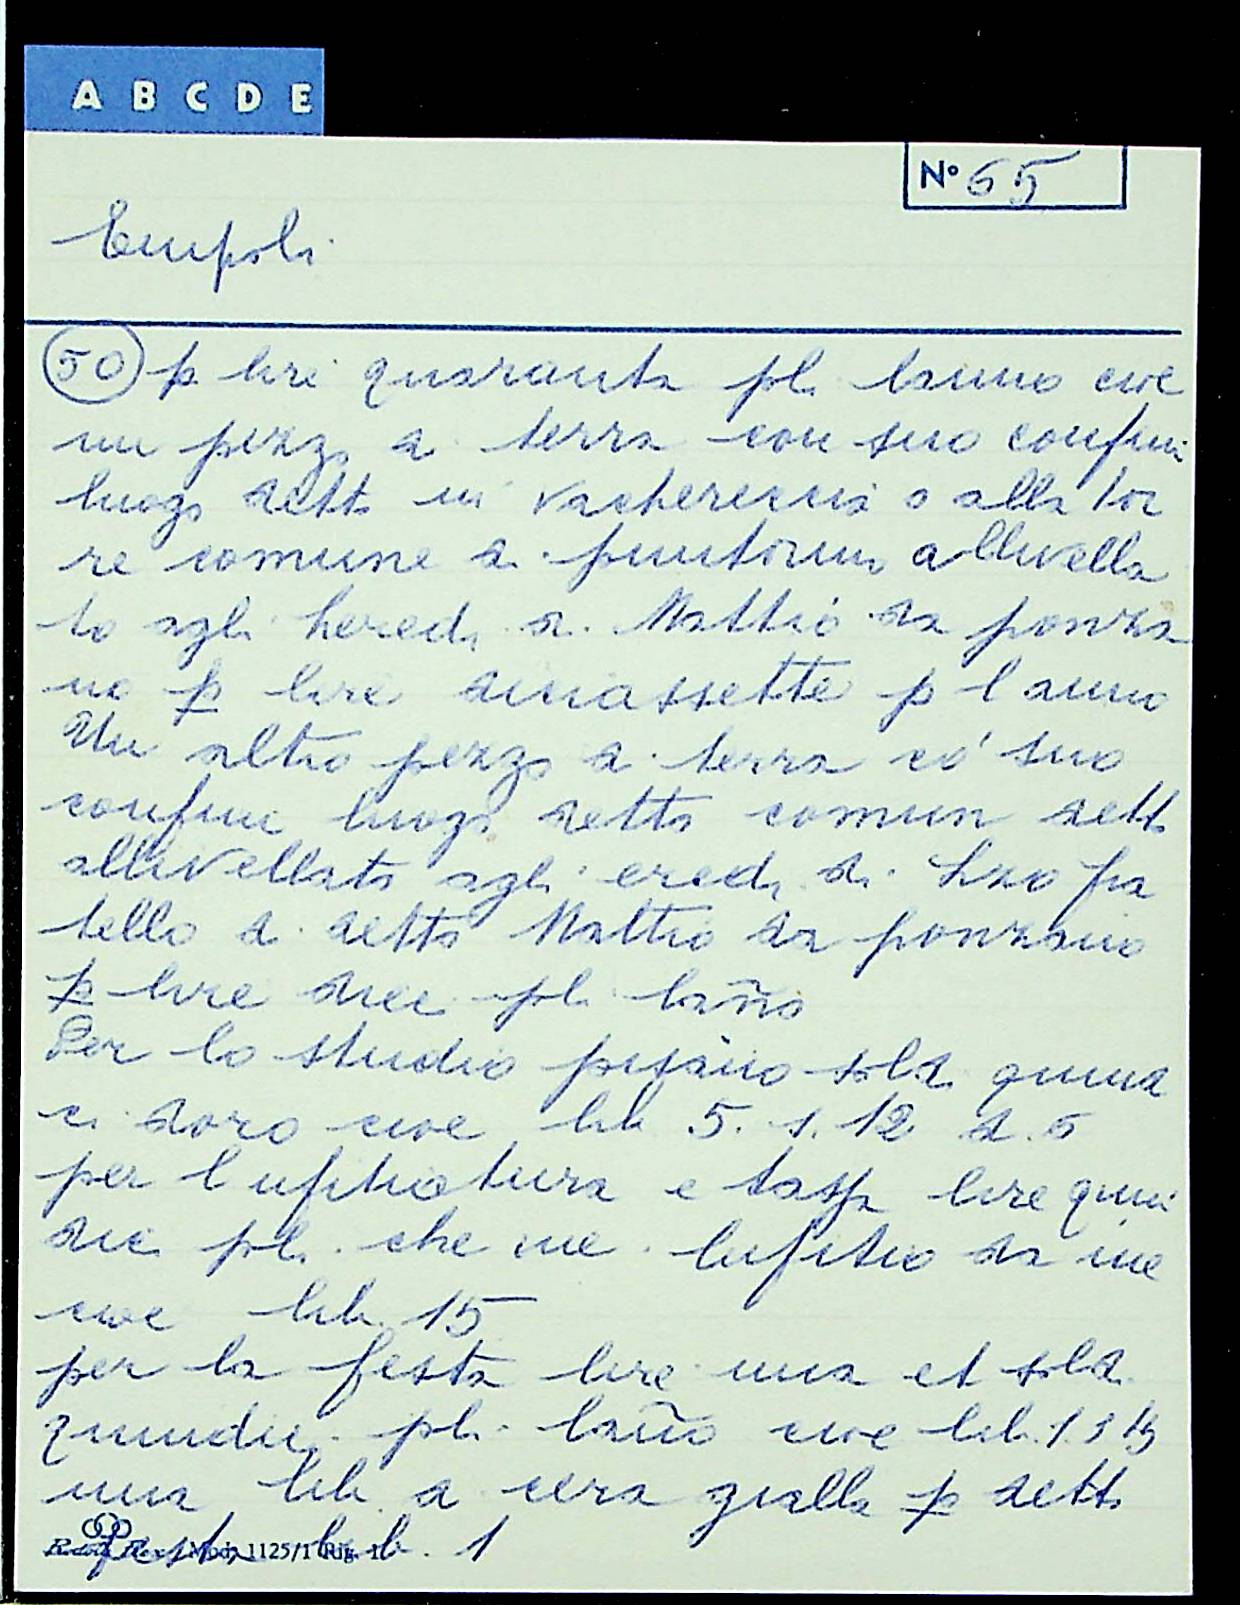 A B C D E
Nº 65
Empoli
50 p lire quaranta pli lanno cioe
un pezzo di terra con suo confini
luogo detto in Vachereccia o alla tor
re comune di puntormo allivella
to agli heredi di Mattio da ponza
no p lire diciassette p l anno
Un altro pezzo di terra co' suo
confini luogo detto comun detto
allivellato agli eredi di fra
tello di detto Mattio da ponzano
p lire dieci pli lan̄o
Per lo studio pisano sold quind
ci doro cioe lib 5. s. 12 d. 6
per l ufitiatura e lire quin
dici pli. che me lufitio da me
cioe lib. 15
per la festa lire una et sold
quindici pli. lan̄o cioe lib. 1. s 15
una lib di cera gialla p detta
festa lib. 1
Mod. 1125/1 Rig. 1